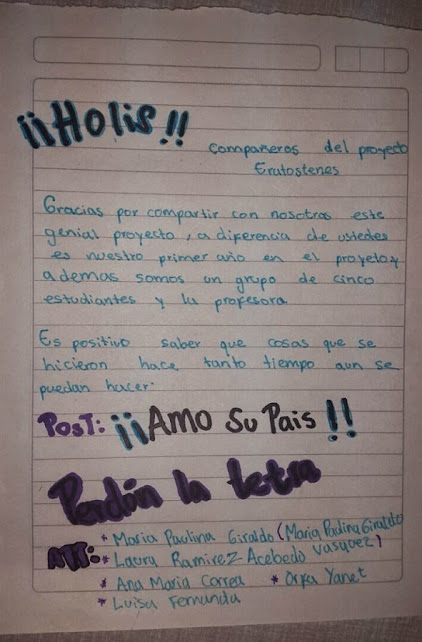 ¡¡Holis!!
compañeros del proyecto
Eratostenes
Gracias por compartir con nosotras este
genial proyecto, a diferencia de ustedes
es nuestro primer año en el proyeto y
ademas somos un grupo de cinco
estudiantes y la profesora
Es positivo saber que cosas que se
hicieron hace tanto tiempo aun se
puedan hacer.
Post: ¡¡AMO Su Pais!!
Perdón la letra
ATT:
* Maria Paulina Giraldo (Maria Paulina Giraldo
* Laura Ramirez Acebedo Vasquez)
* Ana Maria Correa * Yanet
* Luisa Fernanda